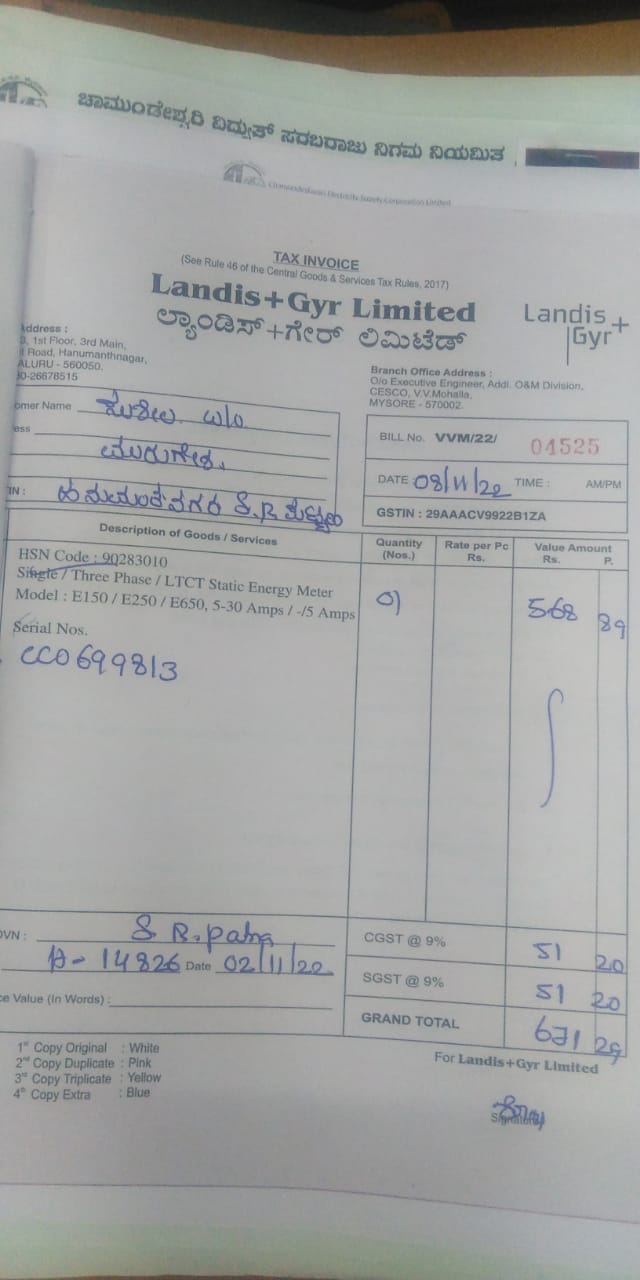 ಚಾಮುಂಡೇಶ್ವರಿ ವಿದ್ಯುತ್ ಸರಬರಾಜು ನಿಗಮ ನಿಯಮಿತ
Chamundeshwari Electricity Supply Corporation Limited
TAX INVOICE
(See Rule 46 of the Central Goods & Services Tax Rules, 2017)
Landis+Gyr Limited
ಲ್ಯಾಂಡಿಸ್+ಗೇರ್ ಲಿಮಿಟೆಡ್
Landis+
Gyr
Address :
1st Floor, 3rd Main,
Road, Hanumanthnagar,
ALURU - 560050.
0-26678515
Branch Office Address :
O/o Executive Engineer, Addl. O&M Division,
CESCO, V.V.Mohalla,
MYSORE - 570002.
omer Name ಸುಶೀಲ w/o
ess ಮುರುಗೇಶ,
IN : ಹನುಮಂತನಗರ S.R
BILL No. VVM/22/ 04525
DATE 08/11/22 TIME : AM/PM
GSTIN : 29AAACV9922B1ZA
Description of Goods / Services
Quantity (Nos.)
Rate per Pc Rs.
Value Amount Rs. P.
HSN Code : 90283010
Single / Three Phase / LTCT Static Energy Meter
Model : E150 / E250 / E650, 5-30 Amps / -/5 Amps
01 568 89
Serial Nos.
CC0699813
OVN : S R.Patna
A- 14826 Date 02/11/22
ce Value (In Words) :
CGST @ 9% 51 20
SGST @ 9% 51 20
GRAND TOTAL 671 29
1st Copy Original : White
2nd Copy Duplicate : Pink
3rd Copy Triplicate : Yellow
4th Copy Extra : Blue
For Landis+Gyr Limited